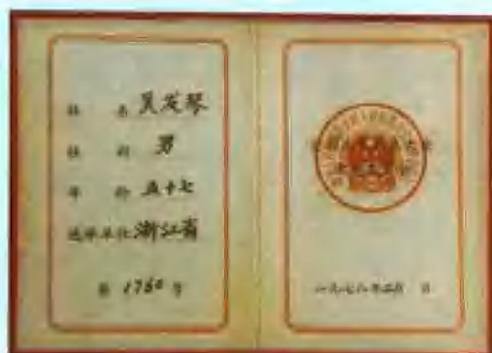 姓 名 吴发琴
性 别 男
年 龄 五十七
选举单位 浙江省
第 1760 号
一九七八年二月 日